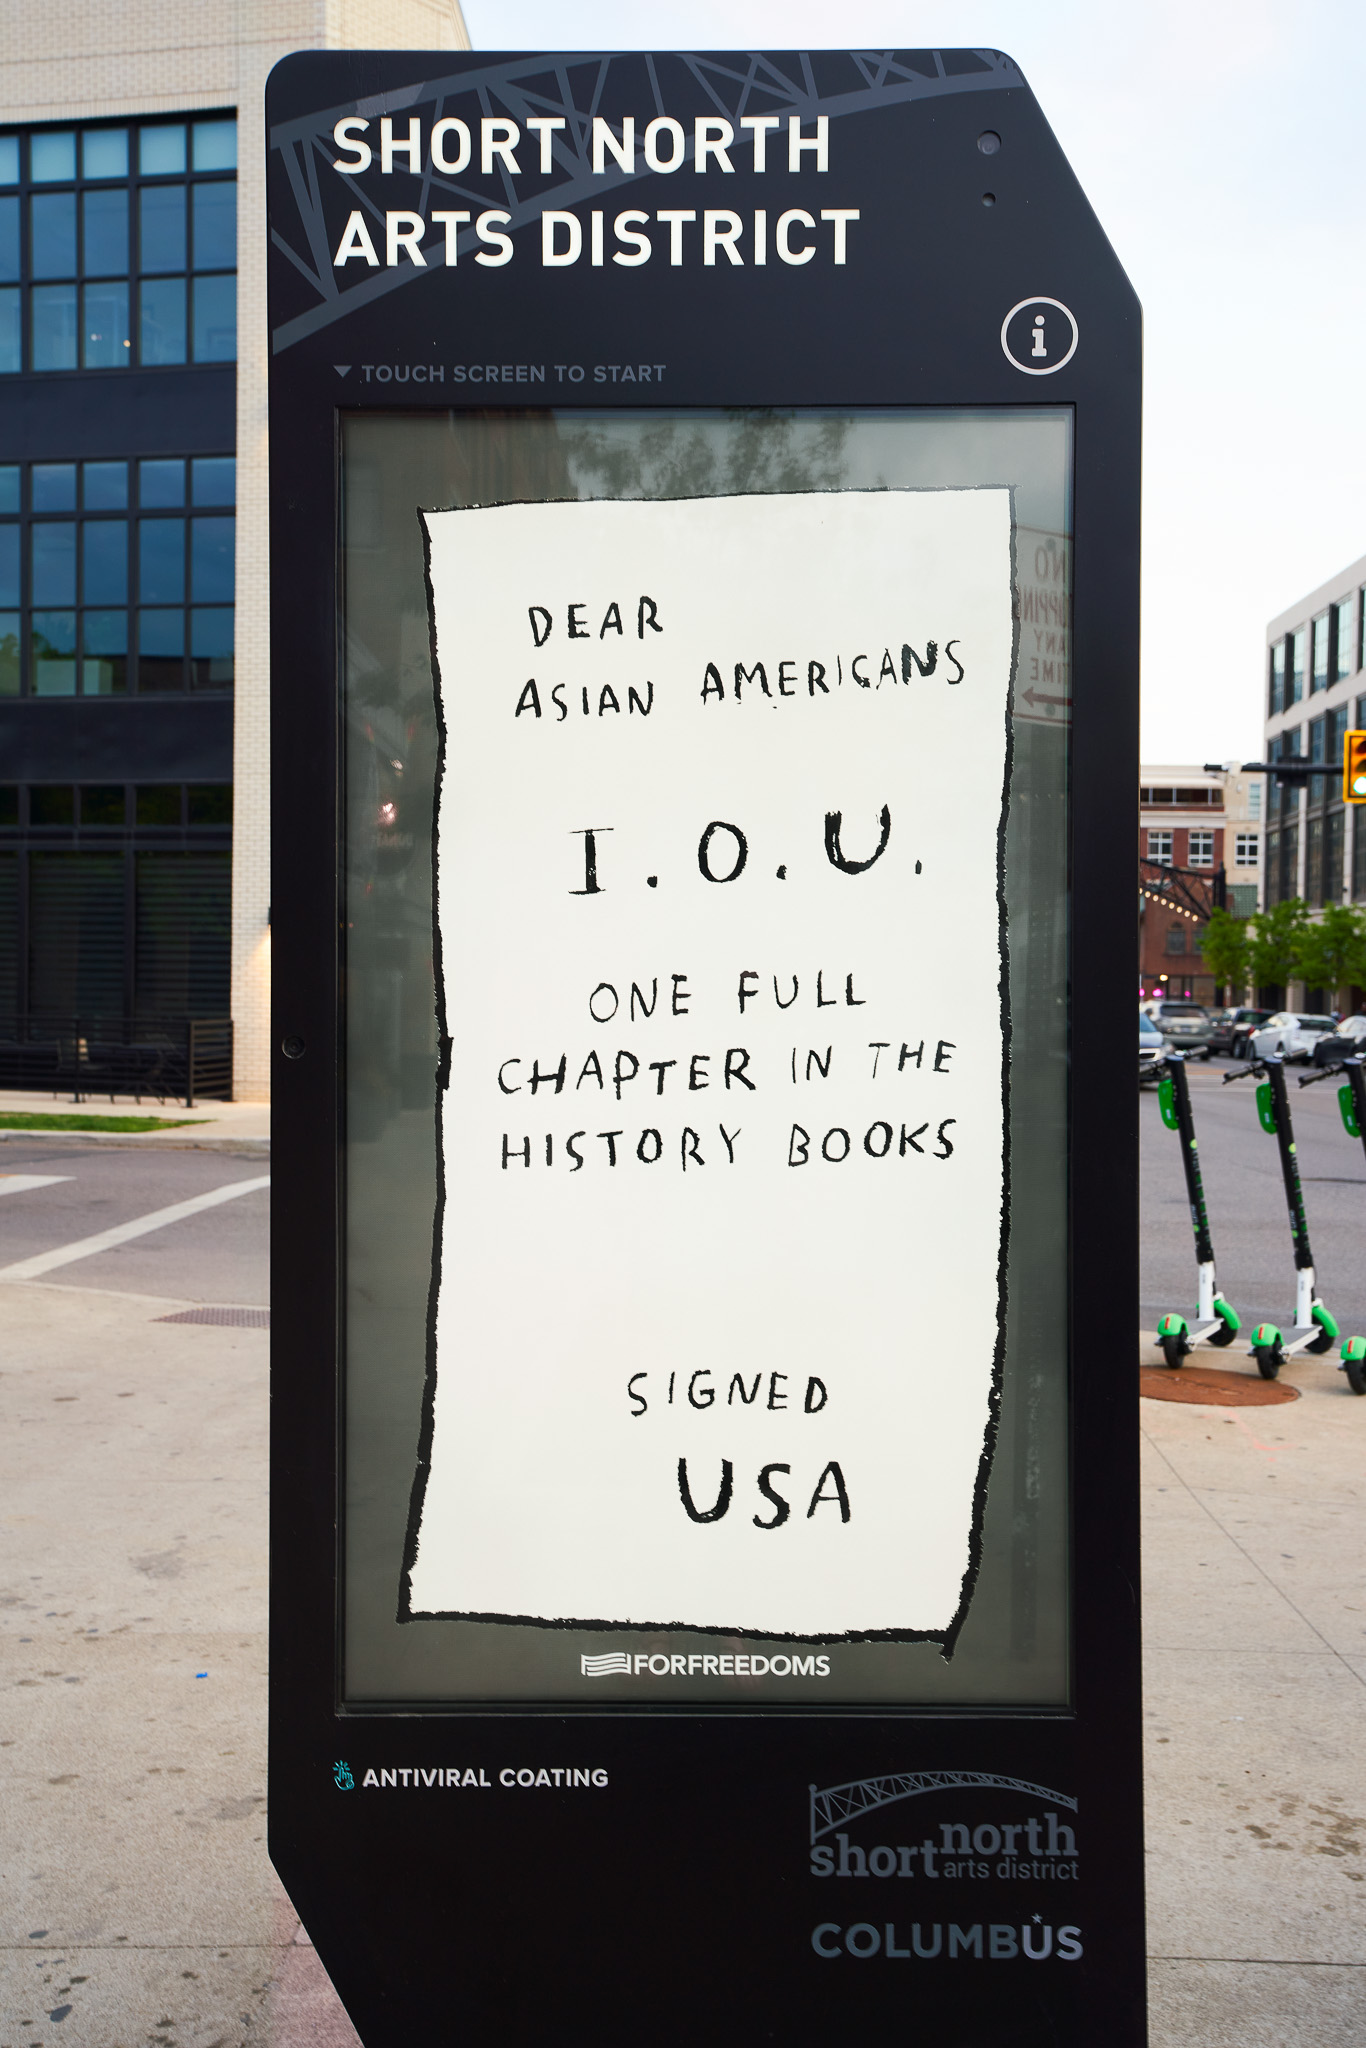 SHORT NORTH
ARTS DISTRICT
i
TOUCH SCREEN TO START
DEAR
ASIAN AMERICANS
I.O.U.
ONE FULL
CHAPTER IN THE
HISTORY BOOKS
SIGNED
USA
FORFREEDOMS
NO
ANY
TIME
ANTIVIRAL COATING
short north
arts district
COLUMBUS